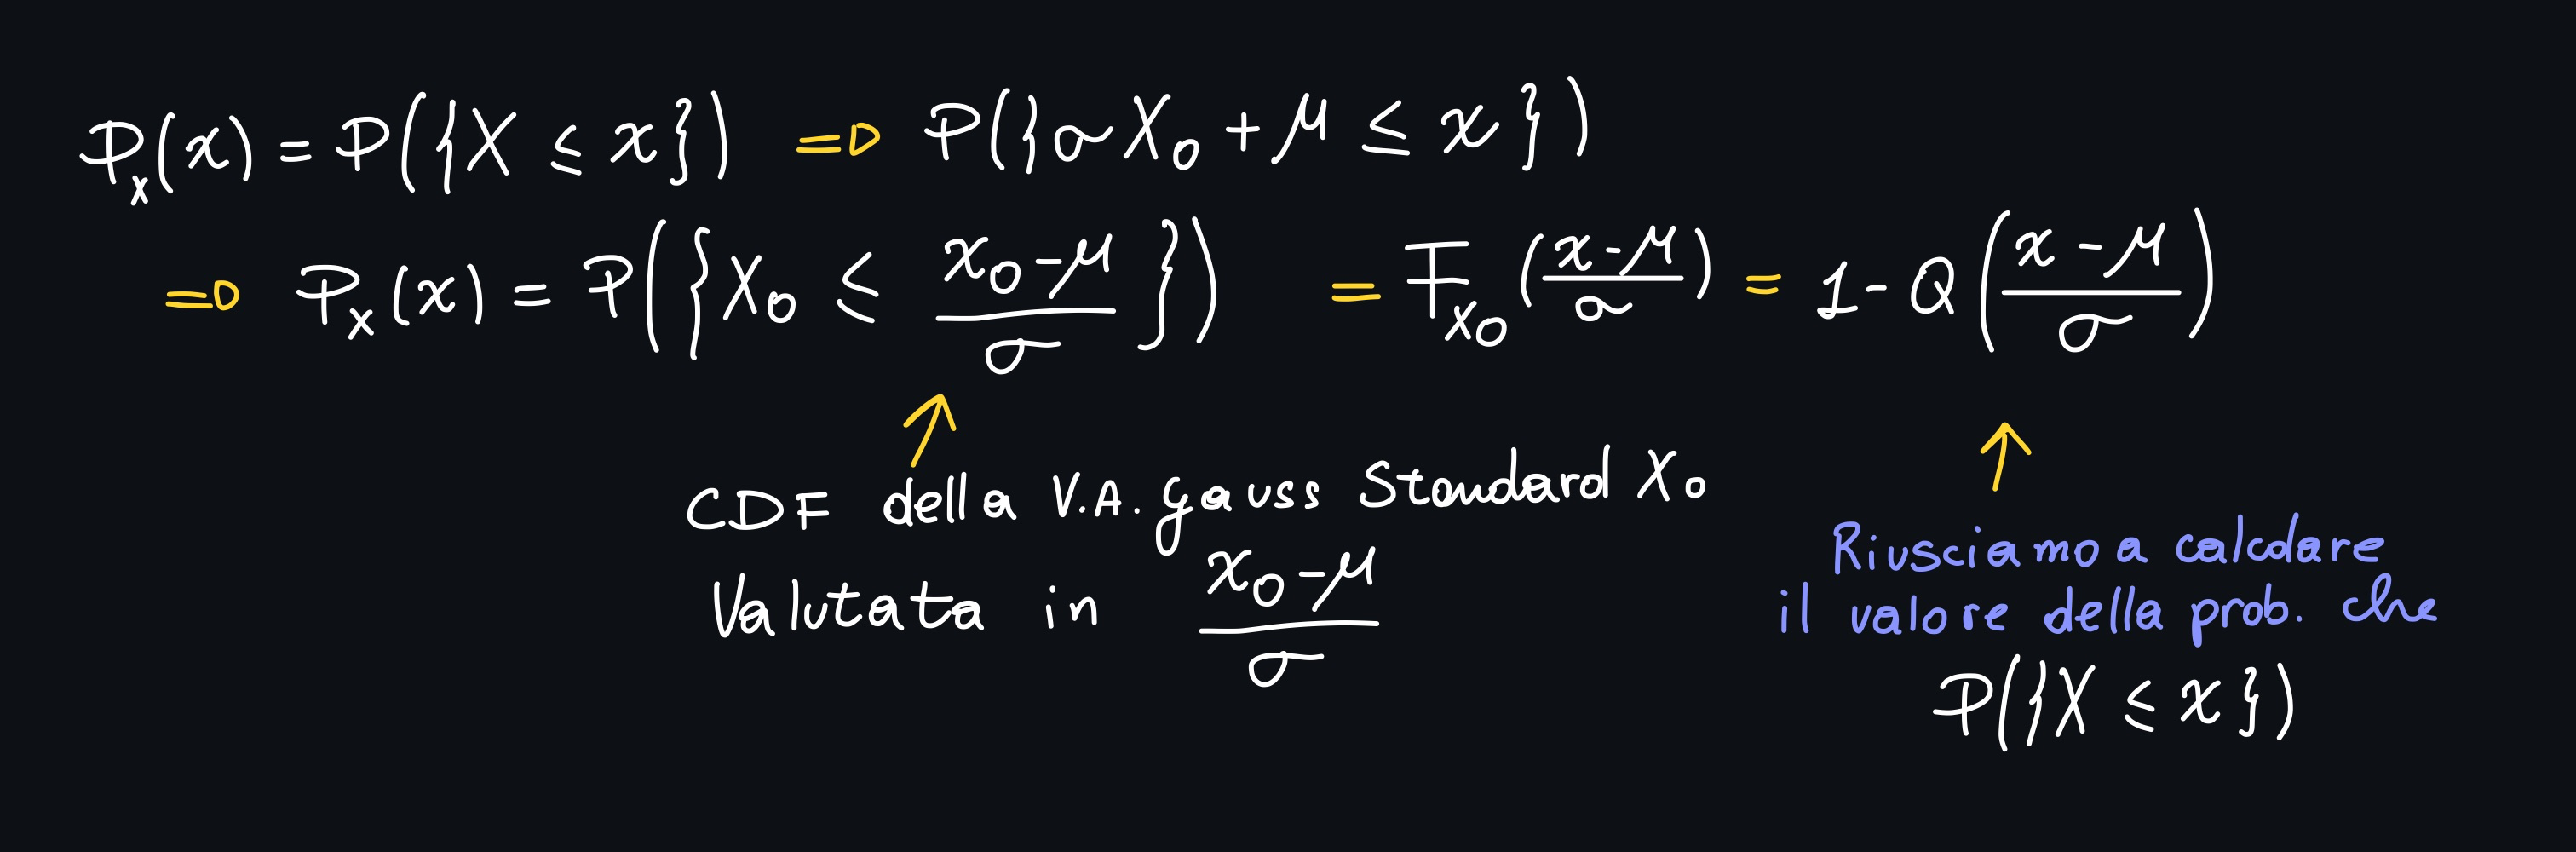 P_x(x) = P({X ≤ x}) => P({σX₀ + μ ≤ x})
=> P_x(x) = P({X₀ ≤ (x₀-μ)/σ}) = F_X₀((x-μ)/σ) = 1 - Q((x-μ)/σ)
CDF della V.A. gauss Standard X₀
Valutata in (x₀-μ)/σ
Riusciamo a calcolare
il valore della prob. che
P({X ≤ x})